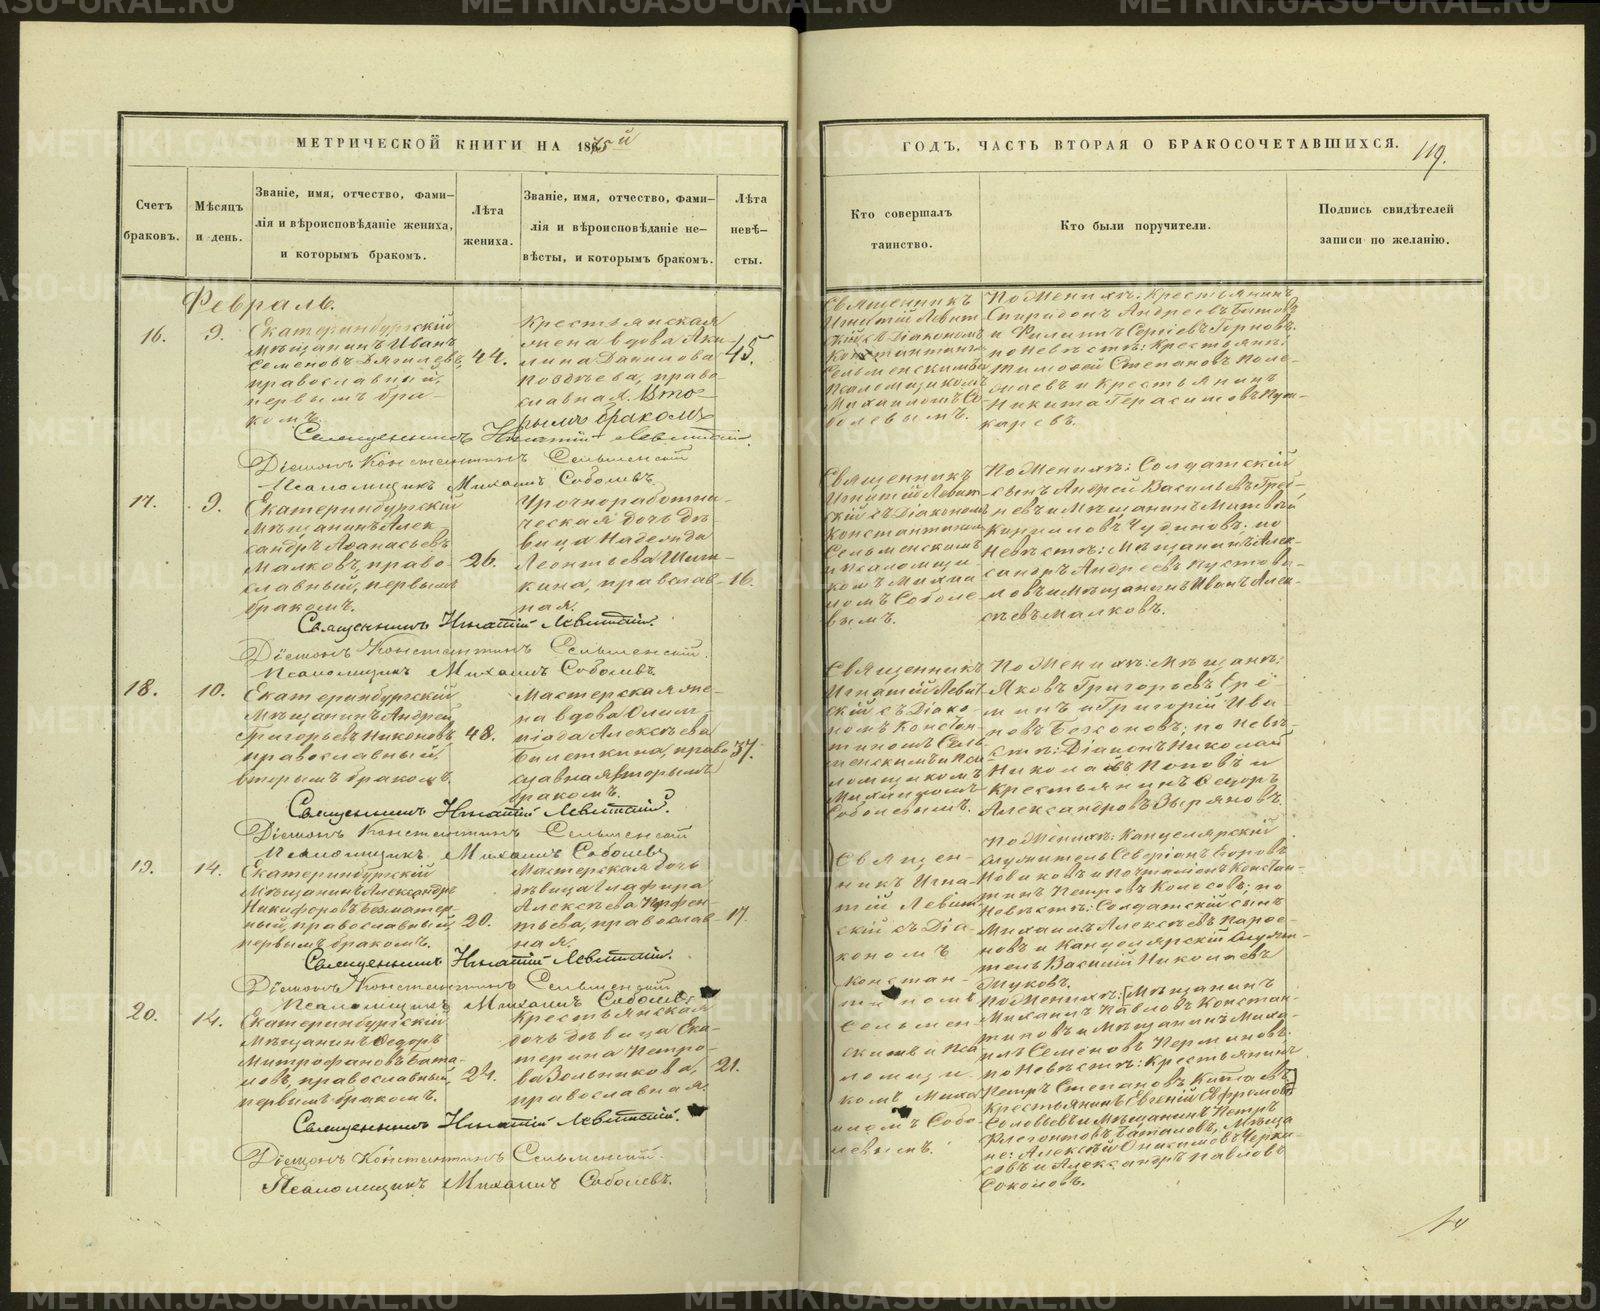 МЕТРИЧЕСКОЙ КНИГИ НА 1875й
Счетъ браковъ.
Мѣсяцъ и день.
Званіе, имя, отчество, фами-
лія и вѣроисповѣданіе жениха,
и которымъ бракомъ.
Лѣта жениха.
Званіе, имя, отчество, фами-
лія и вѣроисповѣданіе не-
вѣсты, и которымъ бракомъ.
Лѣта невѣ-
сты.
Февраль.
16.
9.
Екатеринбургскій
Мѣщанинъ Иванъ
Семеновъ Дягилевъ,
православный,
первымъ бра-
комъ.
44.
Крестьянская
жена вдова Аки-
лина Данилова
Поздѣева, право-
славная. Вто-
рымъ бракомъ
45.
Священникъ Игнатій Левитскій.
Діаконъ Константинъ Сельменскій
Псаломщикъ Михаилъ Соболевъ.
17.
9.
Екатеринбургскій
Мѣщанинъ Алек-
сандръ Аѳанасьевъ
Малковъ, право-
славный, первымъ
бракомъ.
26.
Урочноработни-
ческая дочь дѣ-
вица Надежда
Леонтьева
кина, православ-
ная.
16.
Священникъ Игнатій Левитскій.
Діаконъ Константинъ Сельменскій.
Псаломщикъ Михаилъ Соболевъ.
18.
10.
Екатеринбургскій
Мѣщанинъ Андрей
Григорьевъ Никоновъ,
православный,
вторымъ бракомъ.
48.
Мастерская же-
на вдова Олим-
піада Алексѣева
Билеткина, право-
славная, вторымъ
бракомъ.
37.
Священникъ Игнатій Левитскій.
Діаконъ Константинъ Сельменскій
Псаломщикъ Михаилъ Соболевъ
19.
14.
Екатеринбургскій
Мѣщанинъ Александръ
Никифоровъ Безматер-
ный, православный,
первымъ бракомъ.
20.
Мастерская дочь
дѣвица Глафира
Алексѣева Парѳен-
тьева, православ-
ная.
17.
Священникъ Игнатій Левитскій.
Діаконъ Константинъ Сельменскій
Псаломщикъ Михаилъ Соболевъ
20.
14.
Екатеринбургскій
Мѣщанинъ Ѳедоръ
Митрофановъ Бата-
ловъ, православный,
первымъ бракомъ.
24.
Крестьянская
дочь дѣвица Ека-
терина Петро-
ва Вольникова,
православная.
21.
Священникъ Игнатій Левитскій.
Діаконъ Константинъ Сельменскій.
Псаломщикъ Михаилъ Соболевъ.
ГОДЪ, ЧАСТЬ ВТОРАЯ О БРАКОСОЧЕТАВШИХСЯ.
119.
Кто совершалъ
таинство.
Кто были поручители.
Подпись свидѣтелей
записи по желанію.
Священникъ
Игнатій Левит-
скій съ Діакономъ
Константиномъ
Сельменскимъ и
Псаломщикомъ
Михаиломъ Со-
болевымъ.
По Женихѣ: Крестьянинъ
Спиридонъ Андреевъ Батовъ
и Филиппъ Сергіевъ Горновъ.
по Невѣстѣ: Крестьяне:
Тимоѳей Степановъ Поле-
жаевъ и Крестьянинъ
Никита Герасимовъ Пуш-
каревъ.
Священникъ
Игнатій Левит-
скій съ Діакономъ
Константином
Сельменскимъ
и Псаломщи-
комъ Михаи-
ломъ Соболе-
вымъ.
По Женихѣ: Солдатскій
сынъ Андрей Васильевъ
невъ и Мѣщанинъ Матвѣй
Кирилловъ Чудиновъ; по
Невѣстѣ: Мѣщанинъ Алек-
сандръ Андреевъ Пустова-
ловъ и Мѣщанинъ Иванъ Алек-
сѣевъ Малковъ.
Священникъ
Игнатій Левит-
скій съ Діако-
номъ Констан-
тиномъ Сель-
менскимъ и Пса-
ломщикомъ
Михаиломъ
Соболевымъ.
По Женихѣ: Мѣщане:
Яковъ Григорьевъ Ерё-
минъ и Григорій Ива-
новъ по Невѣ-
стѣ: Діаконъ Николай
Николаевъ Поповъ и
Крестьянинъ Ѳедоръ
Александровъ Зыряновъ.
Священ-
никъ Игна-
тій Левит-
скій съ Діа-
кономъ
Констан-
тиномъ
Сельмен-
скимъ и Пса-
ломщи-
комъ Миха-
иломъ Собо-
левымъ.
По Женихѣ: Канцелярскій
служитель Северіанъ Егоровъ
Новиковъ и Почталіонъ Констан-
тинъ Петровъ Колосовъ; по
Невѣстѣ: Солдатскій сынъ
Михаилъ Алексѣевъ
новъ и Канцелярскій Служи-
тель Василій Николаевъ
Жуковъ.
По Женихѣ: [Мѣщанинъ
Михаилъ Павловъ Констан-
тиновъ и Мѣщанинъ Миха-
илъ Семёновъ Пермяковъ.
по Невѣстѣ: Крестьянинъ
Петръ Степановъ Китаевъ]
Крестьянинъ Евгеній Ефремовъ
Соловьевъ и Мѣщанинъ Петръ
Клегонтовъ Баталовъ, Мѣща-
не: Алексѣй Онисимовъ Черка-
совъ и Александръ Павловъ
Соколовъ.
METRIKI.GASO-URAL.RU